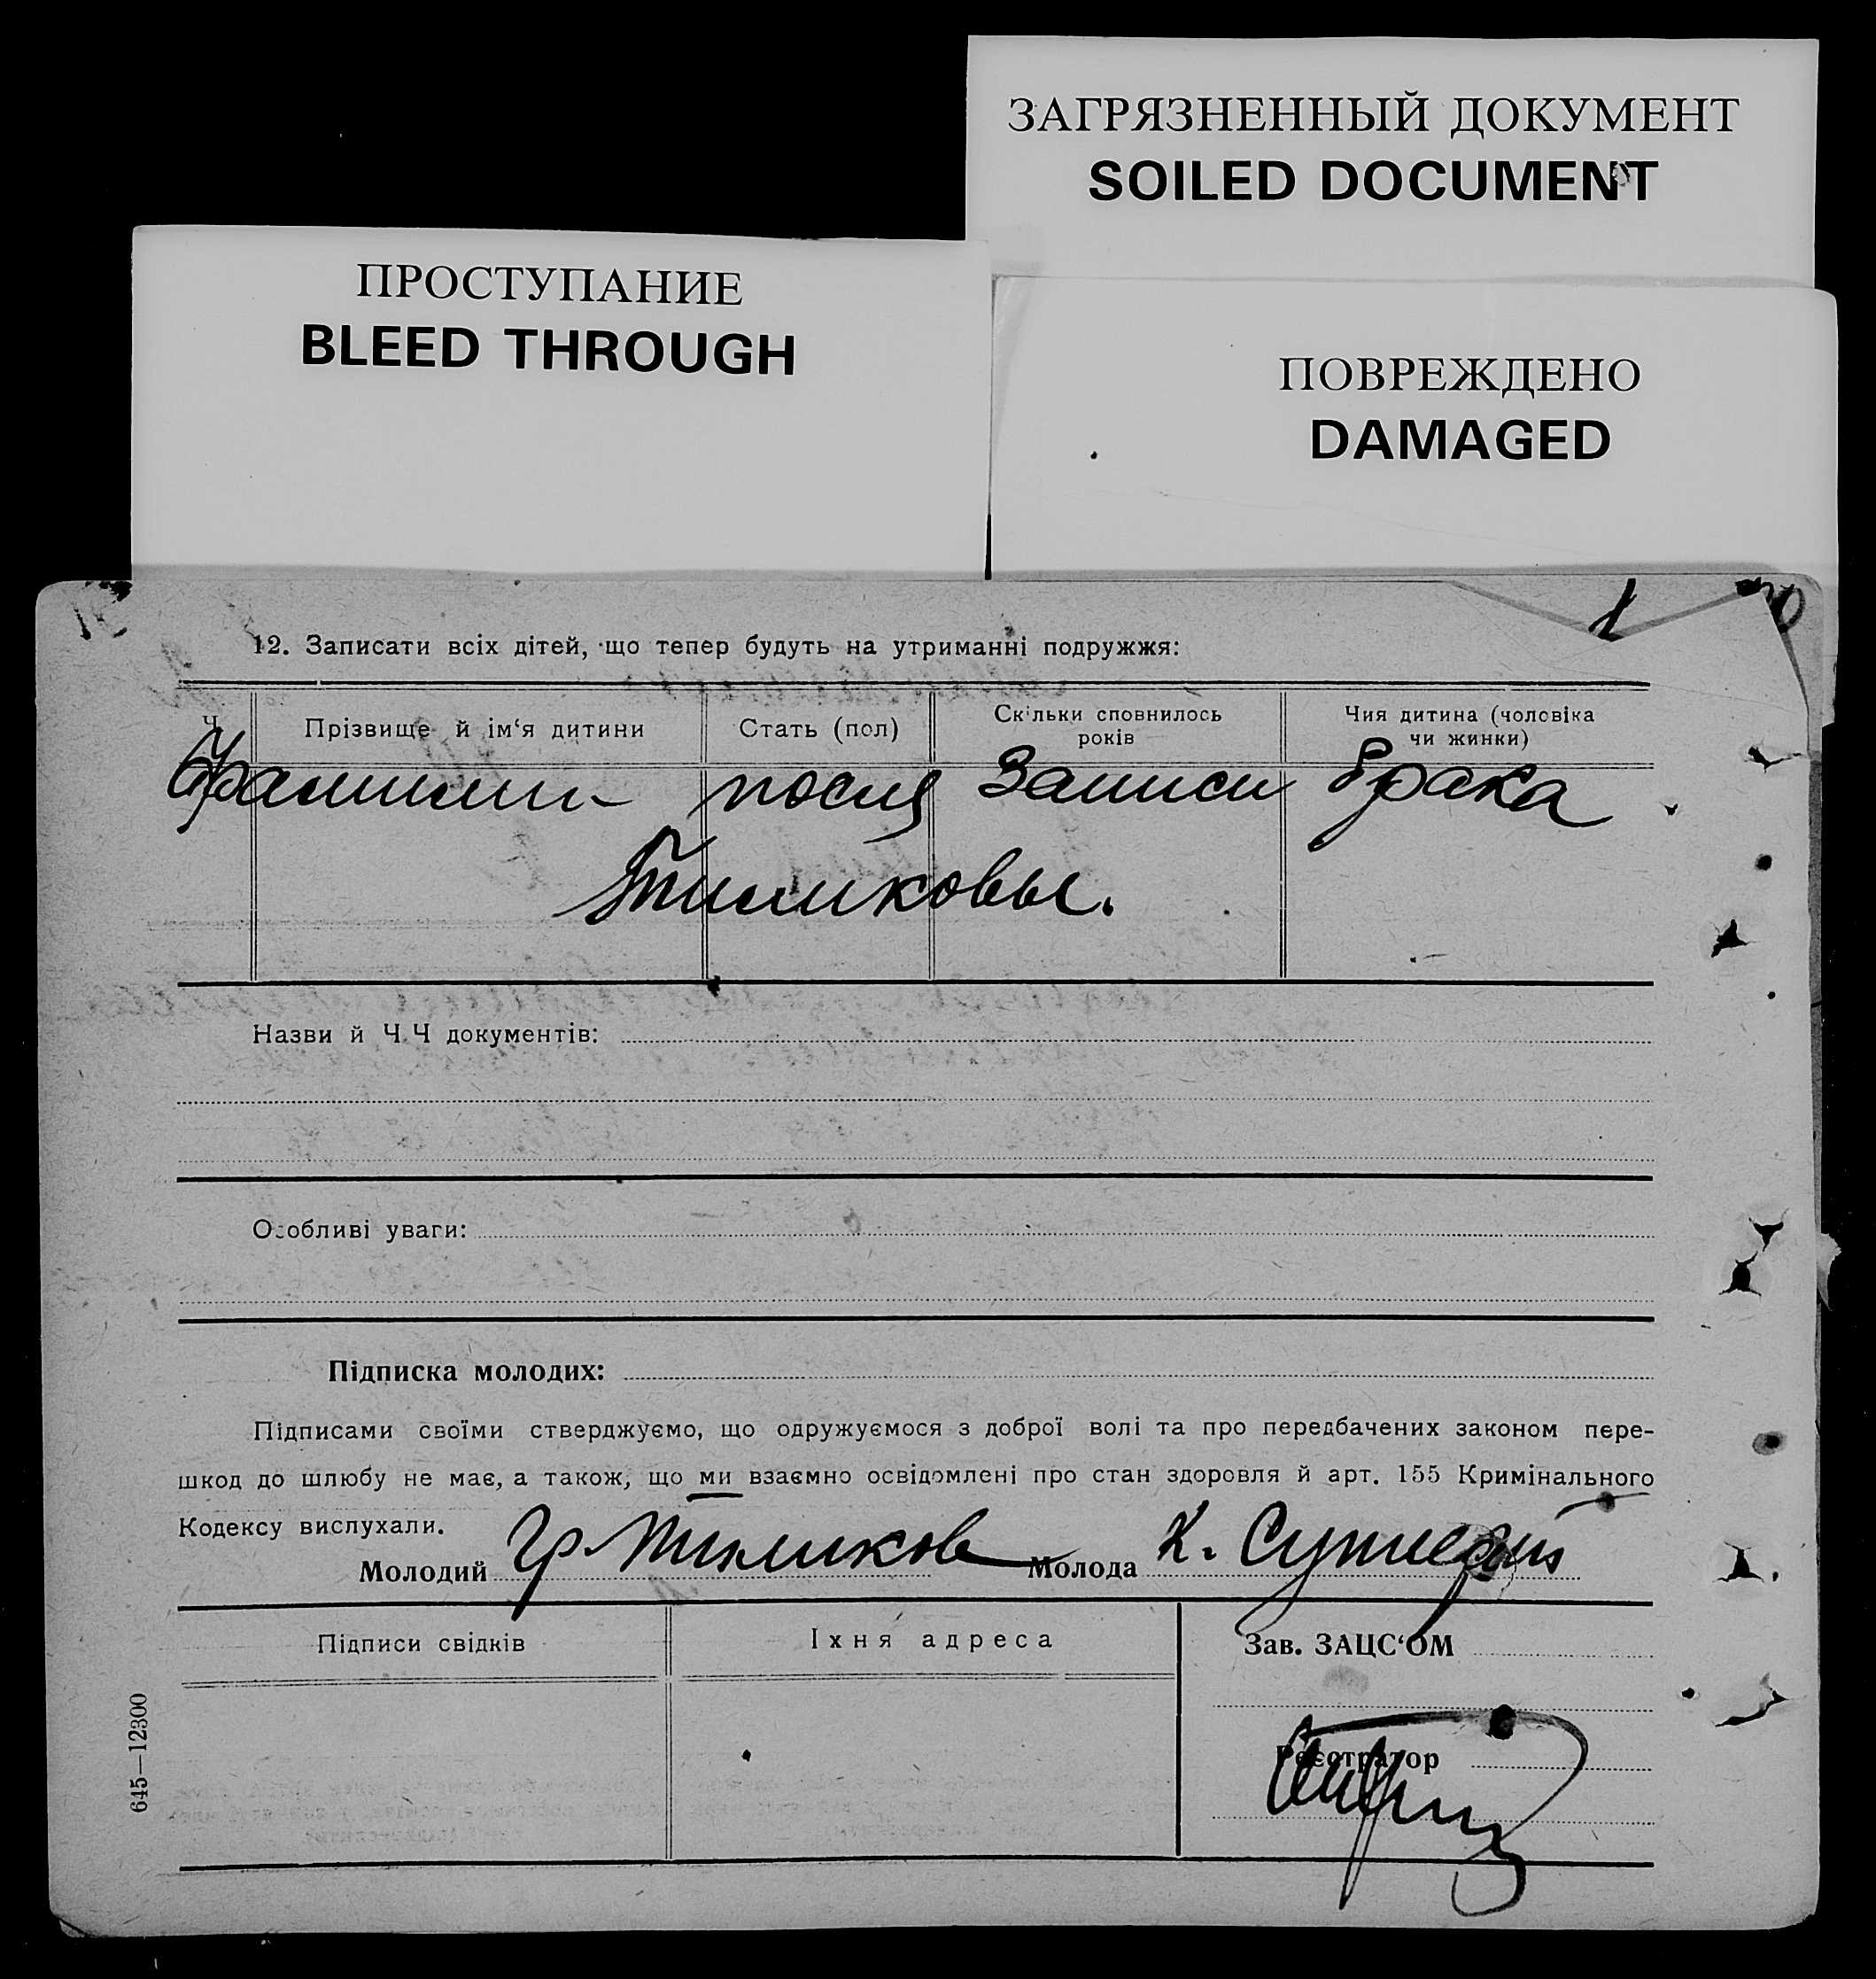 ЗАГРЯЗНЕННЫЙ ДОКУМЕНТ
SOILED DOCUMENT
ПРОСТУПАНИЕ
BLEED THROUGH
ПОВРЕЖДЕНО
DAMAGED
12. Записати всіх дітей, що тепер будуть на утриманні подружжя:
Ч Прізвище й ім‘я дитини Стать (пол) Скільки сповнилось років Чия дитина (чоловіка чи жинки)
после записи брака
Назви й Ч.Ч документів:
Особливі уваги:
Підписка молодих:
Підписами своїми стверджуємо, що одружуємося з доброї волі та про передбачених законом пере-
шкод до шлюбу не має, а також, що ми взаємно освідомлені про стан здоровля й арт. 155 Кримінального
Кодексу вислухали.
Молодий Молода К.
Підписи свідків Їхня адреса Зав. ЗАЦС‘ОМ
Реєстратор
645—12300